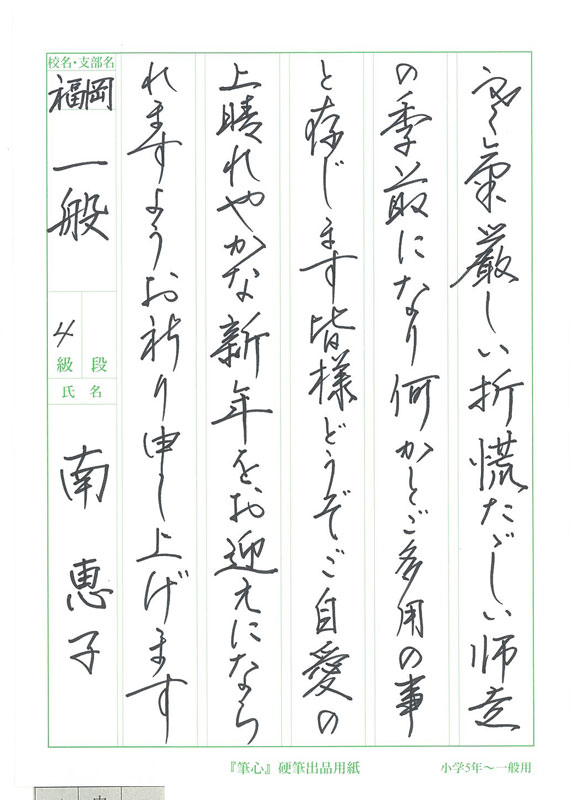 寒気厳しい折慌たゞしい師走
の季節になり何かとご多用の事
と存じます皆様どうぞご自愛の
上晴れやかな新年をお迎えになら
れますようお祈り申し上げます
校名・支部名
福岡
一般
4
級 段
氏名
南 恵子
『筆心』硬筆出品用紙
小学5年〜一般用